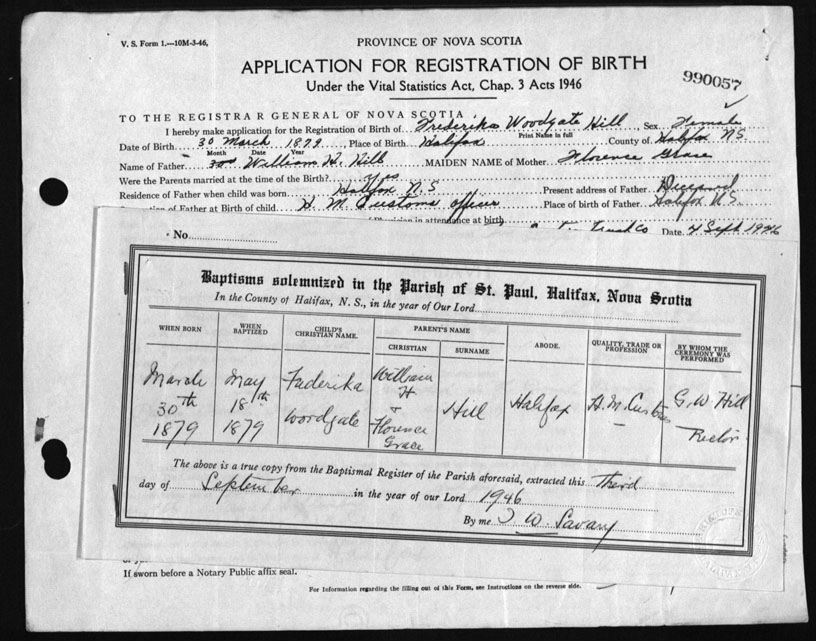 V. S. Form 1.—10M-3-46,
PROVINCE OF NOVA SCOTIA
APPLICATION FOR REGISTRATION OF BIRTH
Under the Vital Statistics Act, Chap. 3 Acts 1946
990057
TO THE REGISTRAR GENERAL OF NOVA SCOTIA
I hereby make application for the Registration of Birth of Frederika Woodgate Hill, Sex Female
Print Name in full
Date of Birth 30 March 1879, Place of Birth Halifax County of Halifax N.S.
Month Date Year
Name of Father William H. Hill MAIDEN NAME of Mother Florence Grace
Were the Parents married at the time of the Birth? yes
Residence of Father when child was born Halifax N.S Present address of Father Deceased
of Father at Birth of child H. M. Customs officer Place of birth of Father Halifax N.S.
in attendance at birth
Date 4 Sept 1946
No.
Baptisms solemnized in the Parish of St. Paul, Halifax, Nova Scotia
In the County of Halifax, N. S., in the year of Our Lord
WHEN BORN WHEN BAPTIZED CHILD'S CHRISTIAN NAME. PARENT'S NAME CHRISTIAN SURNAME ABODE. QUALITY, TRADE OR PROFESSION BY WHOM THE CEREMONY WAS PERFORMED
March 30th 1879 May 18th 1879 Frederika Woodgate William H & Florence Grace Hill Halifax H.M. Customs G. W. Hill Rector
The above is a true copy from the Baptismal Register of the Parish aforesaid, extracted this Third
day of September in the year of our Lord 1946
By me W. Savary
If sworn before a Notary Public affix seal.
For Information regarding the filling out of this Form, see Instructions on the reverse side.